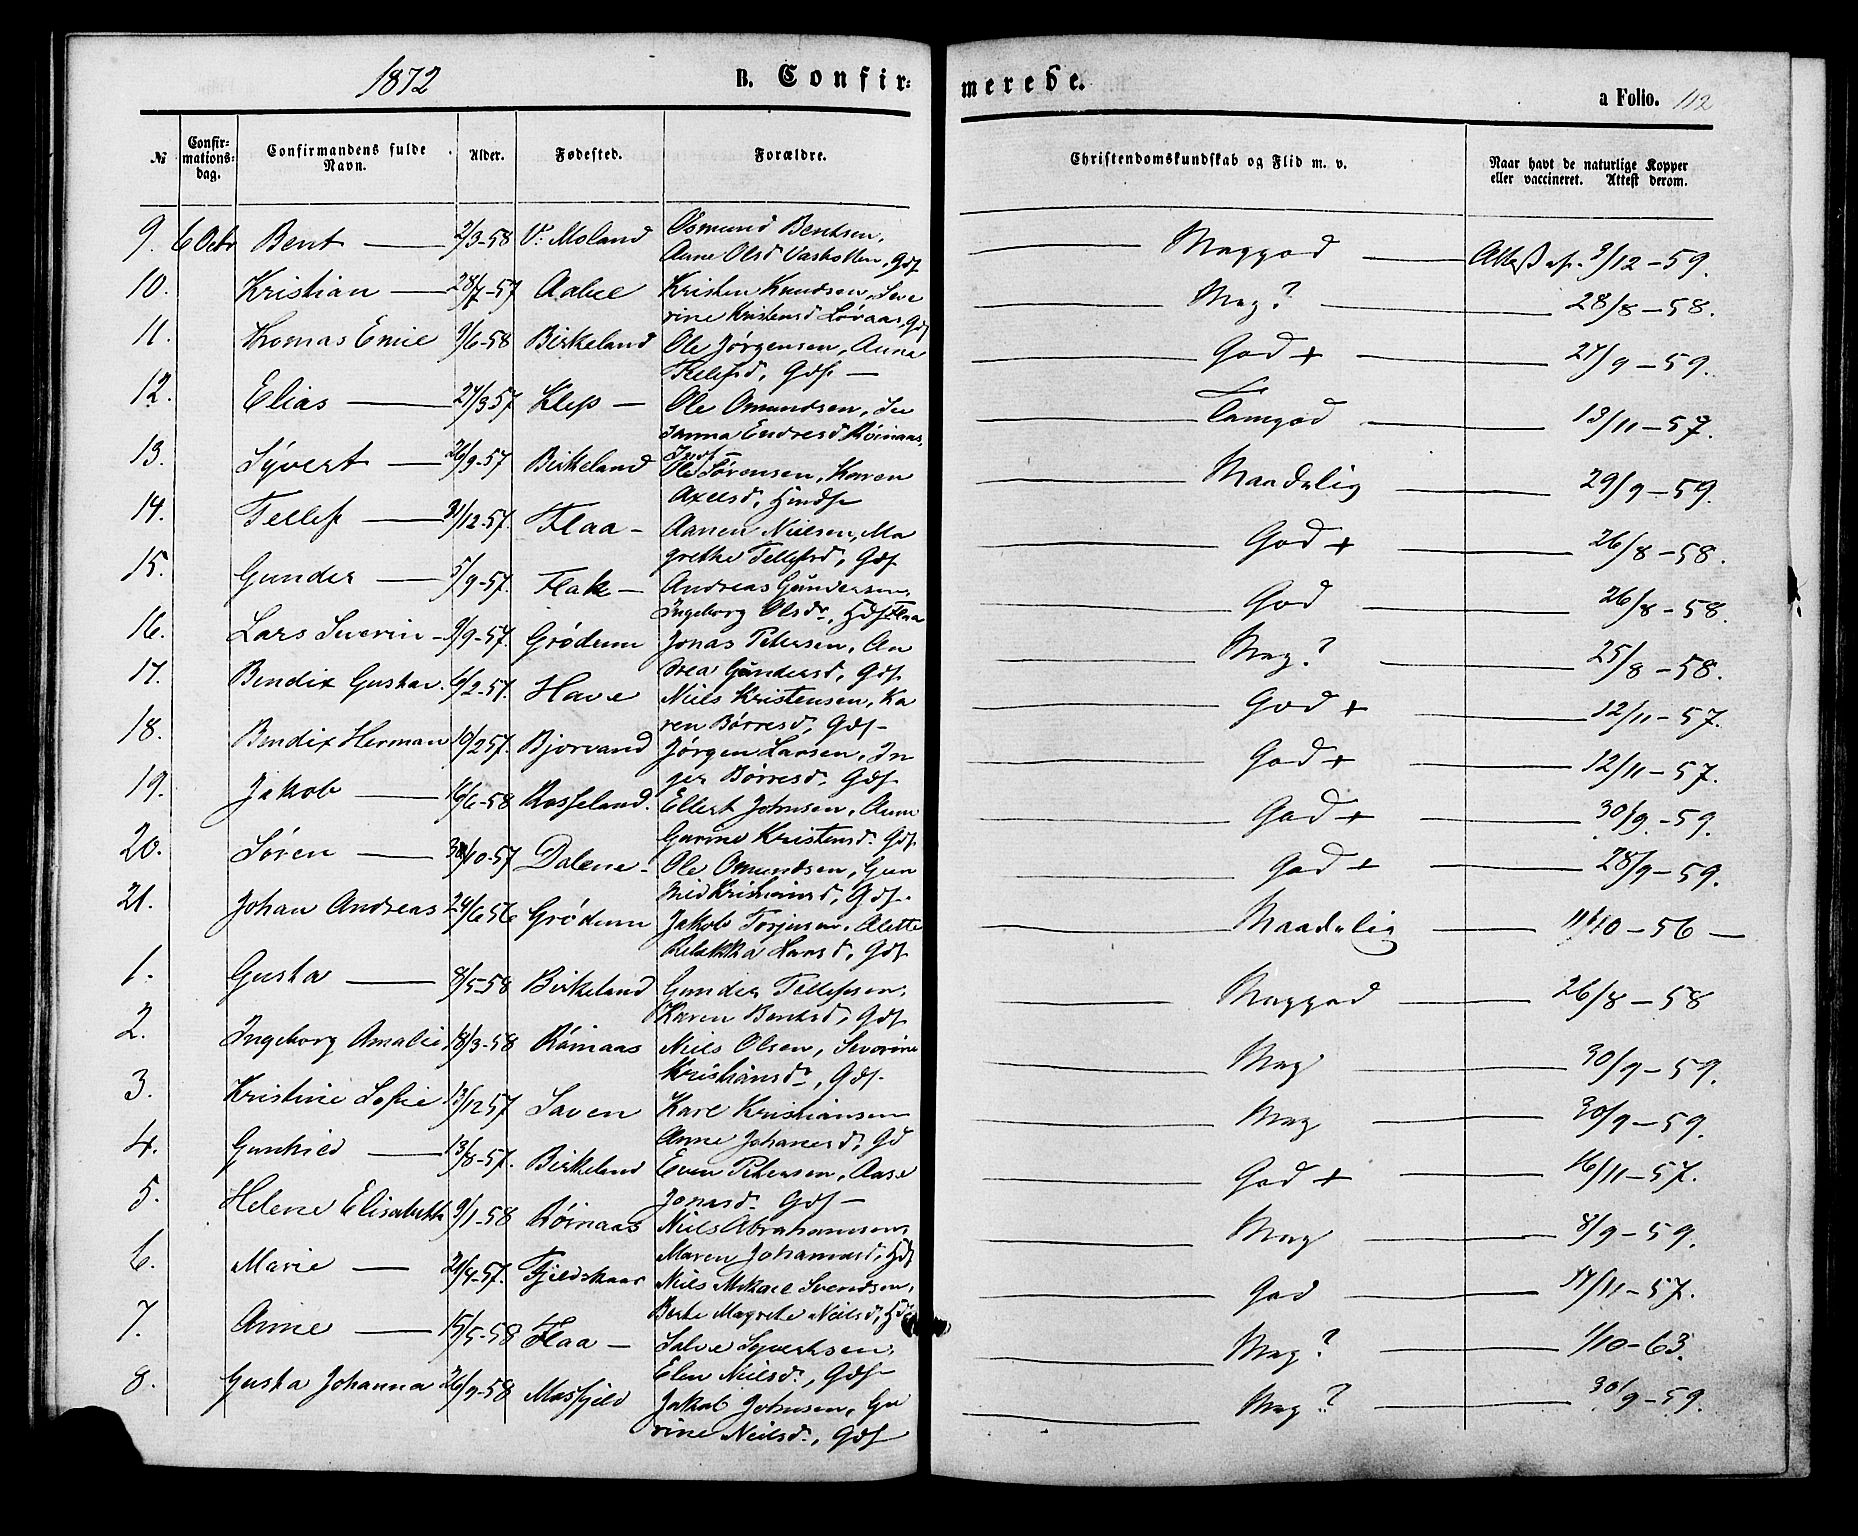 1872
B. Confir: merede.
a Folio. 112
№ Confir-mations-dag. Confirmandens fulde Navn. Alder. Fødested. Forældre. Christendomskundskab og Flid m. v. Naar havt de naturlige Kopper eller vaccineret. Attest derom.
9. 6 Octr Bent — 2/3-58 V: Moland Osmund Bentsen, Meggod Attest af 3/12-59.
Anne Olsd Vasbotten, Gdf
10. Kristian — 28/7-57 Aabel Kristen Knudsen, Seve Meg? 28/8-58.
rine Kristensd Løvaas, Gdf
11. Thomas Emil 9/6-58 Birkeland Ole Jørgensen, Anna God + 27/9-59.
Tellefsd, Gdf —
12. Elias — 27/3 57 Klep — Ole Omundsen, Su Tamgod 13/11-57.
sanna Endresd Röinaas,
13. Syvert — 26/9-57 Birkeland Ole Sørensen, Karen Maadelig 29/9-59.
Axelsd, Hmdf
14. Tellef — 31/12-57. Flaa — Aanen Nielsen, Ma God + 26/8-58.
grethe Tellefsd, Gdf
15. Gunder — 5/9-57. Flak — Andreas Gundersen, God 26/8-58.
Ingeborg Olsdr, Hdf Flaa
16. Lars Severin — 9/9-57. Grödum Jonas Petersen, An Meg? 25/8-58.
drea Gundersd, Gdf
17. Bendix Gustav. 6/2-57. Have Niels Kristensen, Ka God + 12/11-57.
ren Børresd, Gdf —
18. Bendix Herman 10/2 57. Bjorvand Jørgen Larsen, In God + 12/11-57.
ger Børresd, Gdf
19. Jakob — 16/6-58 Rosseland. Ellert Johnsen, Anne God + 30/9-59.
Gurine Kristensd. Gdf
20. Sören — 30/10-57 Dalene — Ole Omundsen, Gun God + 28/9-59.
hild Kristiansd, Gdf.
21. Johan Andreas 24/6 56 Grödum Jakob Torjusen, Alette Maadelig 11/10-56 —
Rebekka Larsd, Gdf
1. Gusta — 8/5-58 Birkeland Gunder Tellefsen, Meggod 26/8-58
Karen Bentsd, Gdf
2. Ingeborg Amalie 18/3-58 Röinaas Niels Olsen, Severine Meg 30/9-59.
Kristiansdr, Gdf.
3. Kristine Sofie 13/12 57 Saven Karl Kristiansen Meg 30/9-59.
Anne Johanesd, Gd
4. Gunhild — 13/8-57. Birkeland Even Petersen, Aase God + 16/11-57.
Jonasd. Gdf —
5. Helene Elisabeth 9/1-58 Röinaas Niels Abrahamsen, Meg 8/9-59.
Maren Johannesd, Hdf
6. Marie — 21/4-57. Fjeldskaar Niels Mikael Svendsen, God 17/11-57.
Berte Magrete Nielsd, Hdf
7. Anne — 15/5-58 Flaa — Salve Syvertsen, Meg? 1/10-63.
Elen Nielsd, Gdf
8. Gusta Johanna 26/9-58 Mosfjeld Jakob Johnsen, Gu Meg? 30/9-59.
rine Nielsd., Gdf